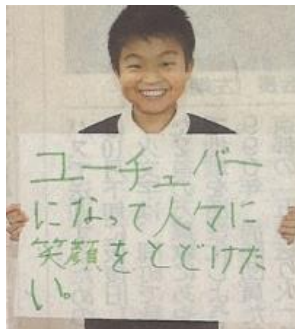 ユーチューバー
になって人々に
笑顔をとどけた
い。